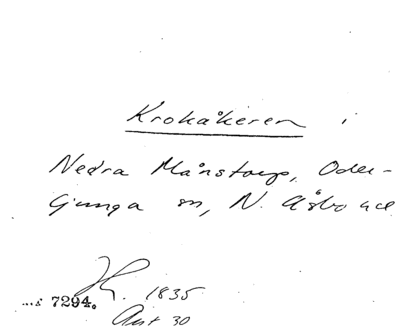 Krokåkeren i
Nedra Månstorp, Oder-
ljunga sn, N. Åsbo hd
7294. 1835
30